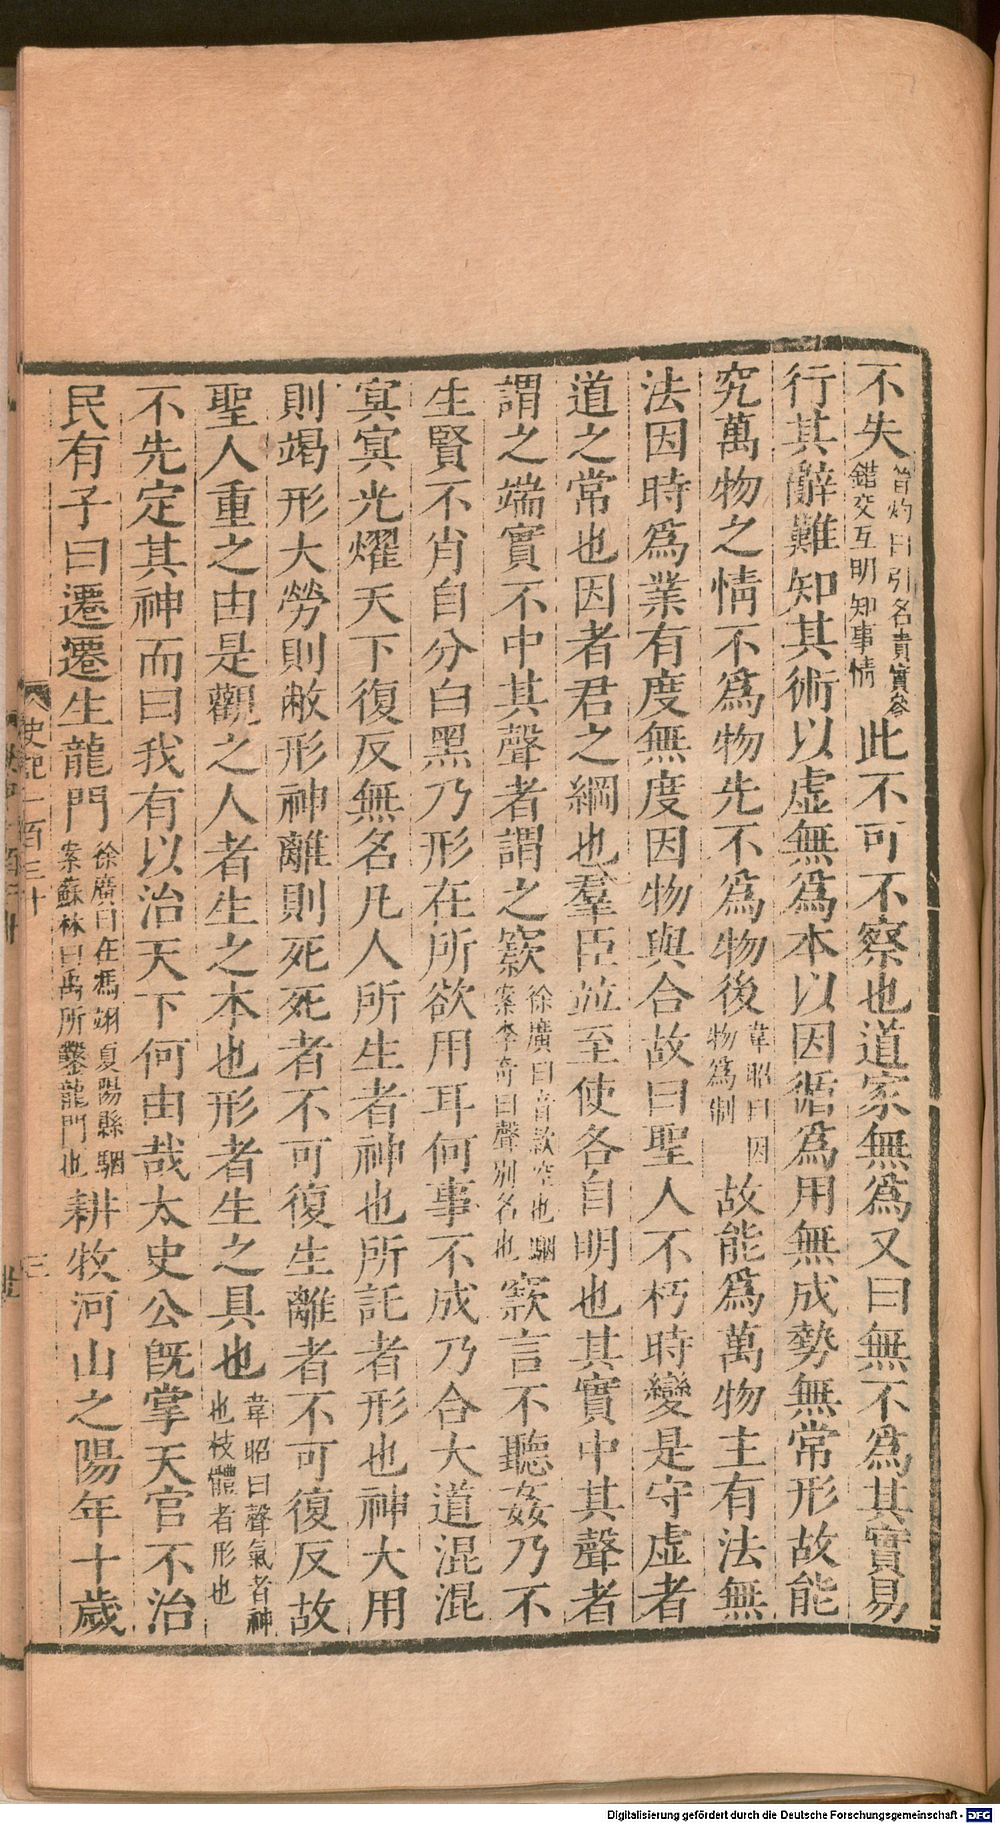 不失晉灼曰引名責實參錯交互明知事情此不可不察也道家無爲又曰無不爲其實易
行其辭難知其術以虛無爲本以因循爲用無成勢無常形故能
究萬物之情不爲物先不爲物後韋昭曰因物爲制故能爲萬物主有法無
法因時爲業有度無度因物與合故曰聖人不朽時變是守虛者
道之常也因者君之綱也羣臣竝至使各自明也其實中其聲者
謂之端實不中其聲者謂之窾徐廣曰音款空也駰案李奇曰聲別名也窾言不聽姦乃不
生賢不肖自分白黑乃形在所欲用耳何事不成乃合大道混混
冥冥光燿天下復反無名凡人所生者神也所託者形也神大用
則竭形大勞則敝形神離則死死者不可復生離者不可復反故
聖人重之由是觀之人者生之本也形者生之具也韋昭曰聲氣者神也枝體者形也
不先定其神而曰我有以治天下何由哉太史公旣掌天官不治
民有子曰遷遷生龍門徐廣曰在馮翊夏陽縣駰案蘇林曰禹所鑿龍門也耕牧河山之陽年十歲
史記一百三十
三
Digitalisierung gefördert durch die Deutsche Forschungsgemeinschaft - DFG